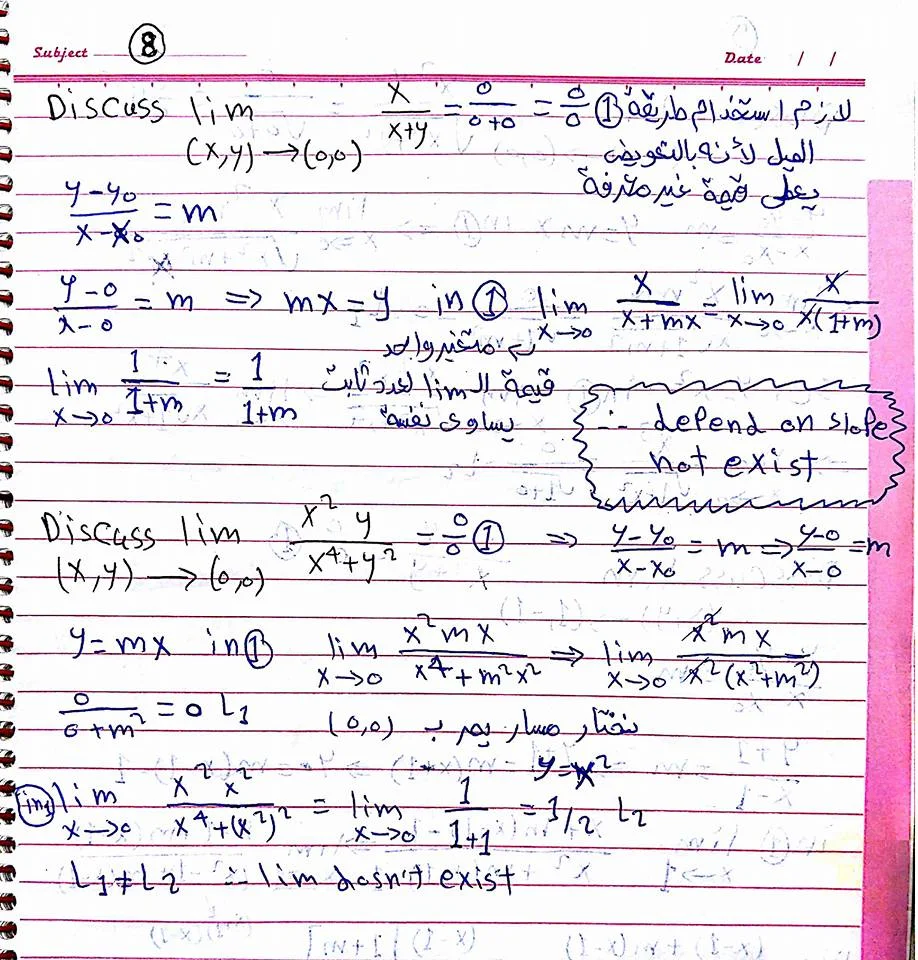 Subject 8 Date / /
Discuss lim x/(x+y) = 0/(0+0) = 0/0 ① لازم استخدام طريقة
(x,y) → (0,0) الميل لأنه بالتعويض
يعطى قيمة غير معرفة
(y-y₀)/(x-x₀) = m
(y-0)/(x-0) = m ⇒ mx = y in ① lim x→0 x/(x+mx) = lim x→0 x/(x(1+m))
متغير واحد
lim x→0 1/(1+m) = 1/(1+m) قيمة الـ lim لعدد ثابت
يساوى نفسه
∴ depend on slope
not exist
Discuss lim x² y/(x⁴+y²) = 0/0 ① ⇒ (y-y₀)/(x-x₀) = m ⇒ (y-0)/(x-0) = m
(x,y) → (0,0)
y = mx in ① lim x→0 x² mx/(x⁴+m²x²) ⇒ lim x→0 x² mx/(x²(x²+m²))
0/(0+m²) = 0 L₁ نختار مسار يمر ب (0,0)
y = x²
in 1 lim x→0 x² x²/(x⁴+(x²)²) = lim x→0 1/(1+1) = 1/2 L₂
L₁ ≠ L₂ ∴ lim dosn't exist